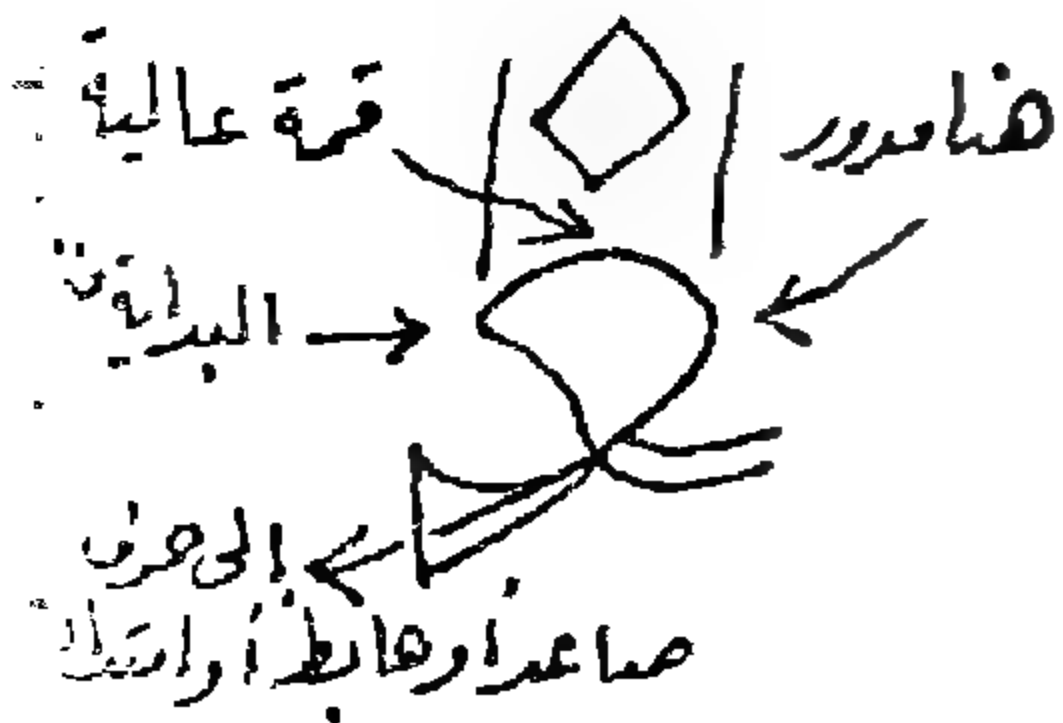 قمة عالية
هنا مدور
البداية
إلى حرف
صاعد أو هابط أو